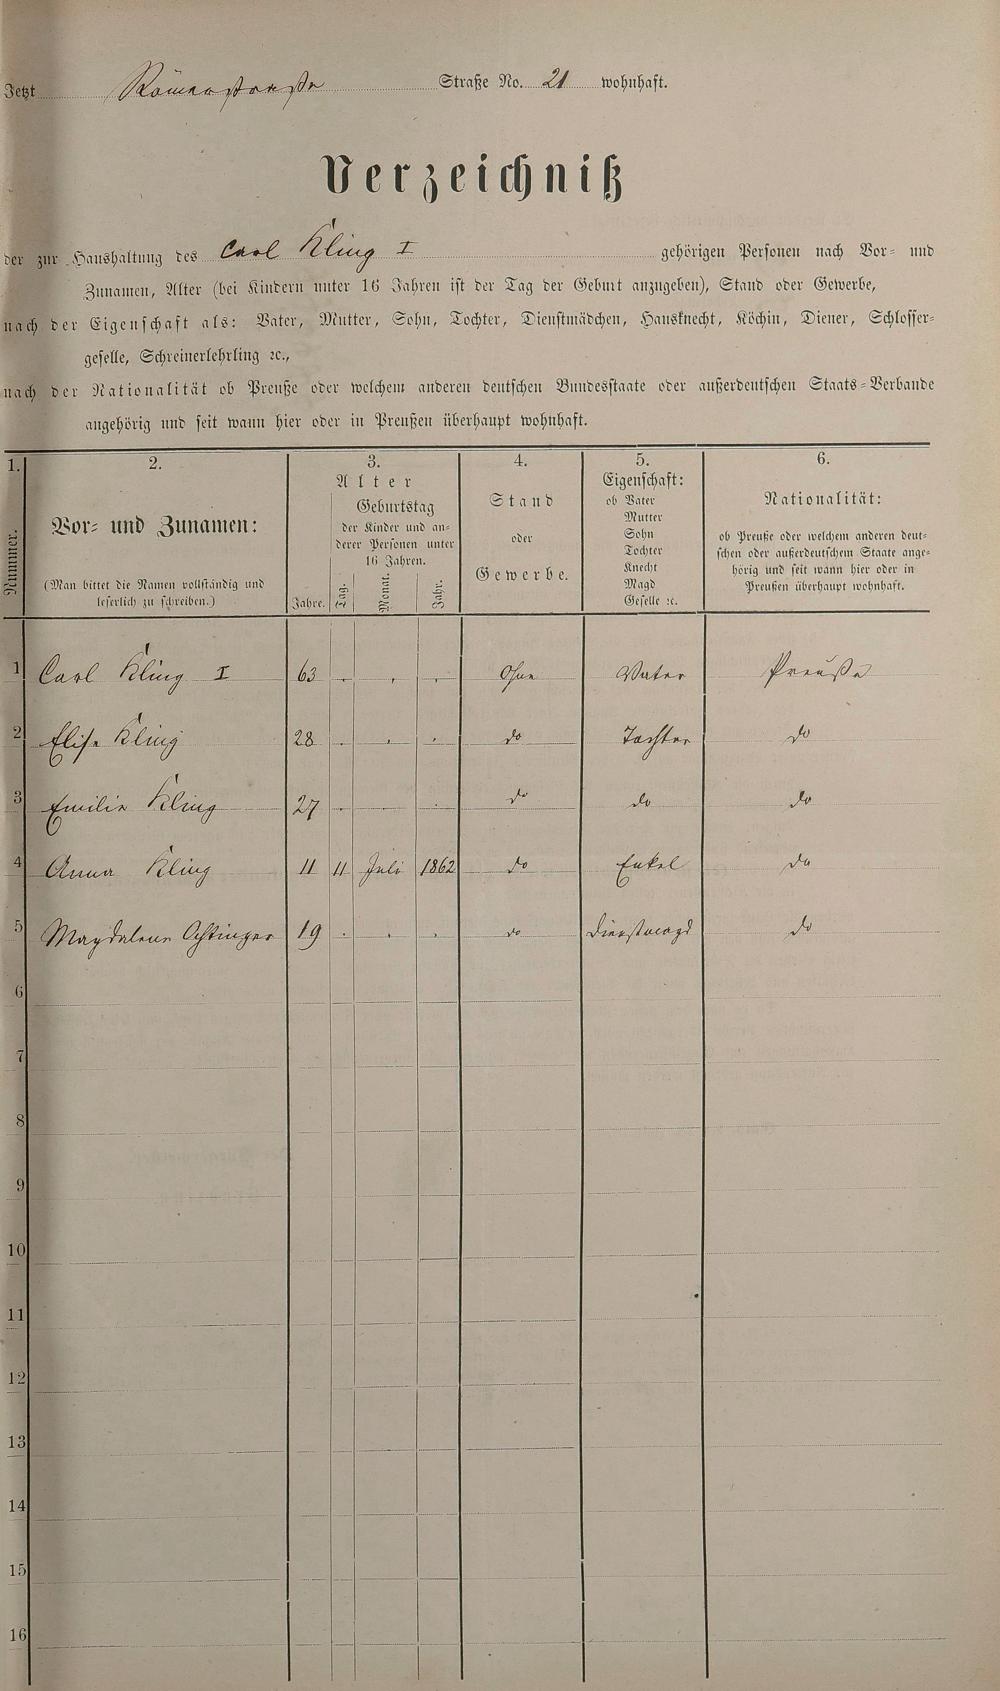 Jetzt Römerstraße Straße No. 21 wohnhaft.
Verzeichniß
der zur Haushaltung des Carl Kling I gehörigen Personen nach Vor- und
Zunamen, Alter (bei Kindern unter 16 Jahren ist der Tag der Geburt anzugeben), Stand oder Gewerbe,
nach der Eigenschaft als: Vater, Mutter, Sohn, Tochter, Dienstmädchen, Hausknecht, Köchin, Diener, Schlosser-
geselle, Schreinerlehrling ꝛc.,
nach der Nationalität ob Preuße oder welchem anderen deutschen Bundesstaate oder außerdeutschen Staats-Verbande
angehörig und seit wann hier oder in Preußen überhaupt wohnhaft.
1. 2. 3. 4. 5. 6.
Nummer.
Vor- und Zunamen:
(Man bittet die Namen vollständig und
leserlich zu schreiben.)
Alter
Geburtstag
der Kinder und an-
derer Personen unter
16 Jahren.
Jahre. Tag. Monat. Jahr.
Stand
oder
Gewerbe.
Eigenschaft:
ob Vater
Mutter
Sohn
Tochter
Knecht
Magd
Geselle ꝛc.
Nationalität:
ob Preuße oder welchem anderen deut-
schen oder außerdeutschem Staate ange-
hörig und seit wann hier oder in
Preußen überhaupt wohnhaft.
1 Carl Kling I 63 . . . Ohne Vater Preuße
2 Elise Kling 28 . . . do Tochter do
3 Emilie Kling 27 . . . do do do
4 Anna Kling 11 11 Juli 1862 do Enkel do
5 Magdalene 19 . . . do Dienstmagd do
6
7
8
9
10
11
12
13
14
15
16